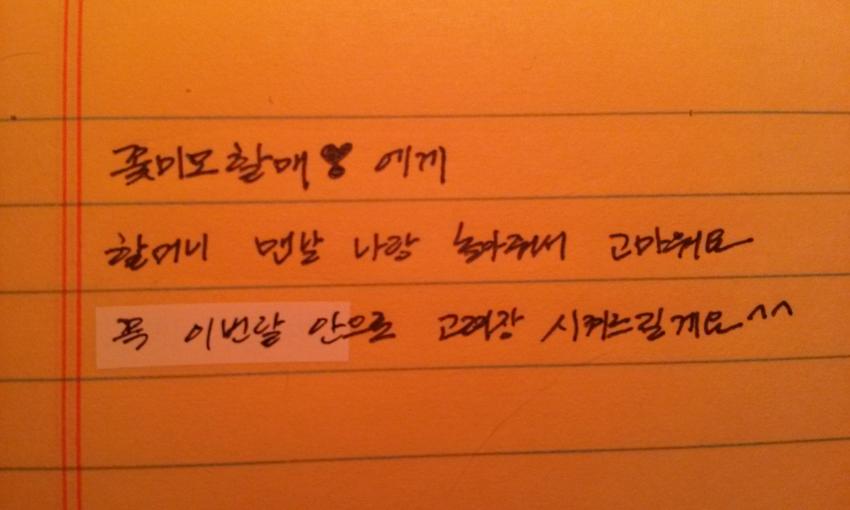 꽃미모할매♥에게
할머니 맨날 나랑 놀아줘서 고마워요
꼭 이번달 안으로 고려장 시켜드릴게요^^